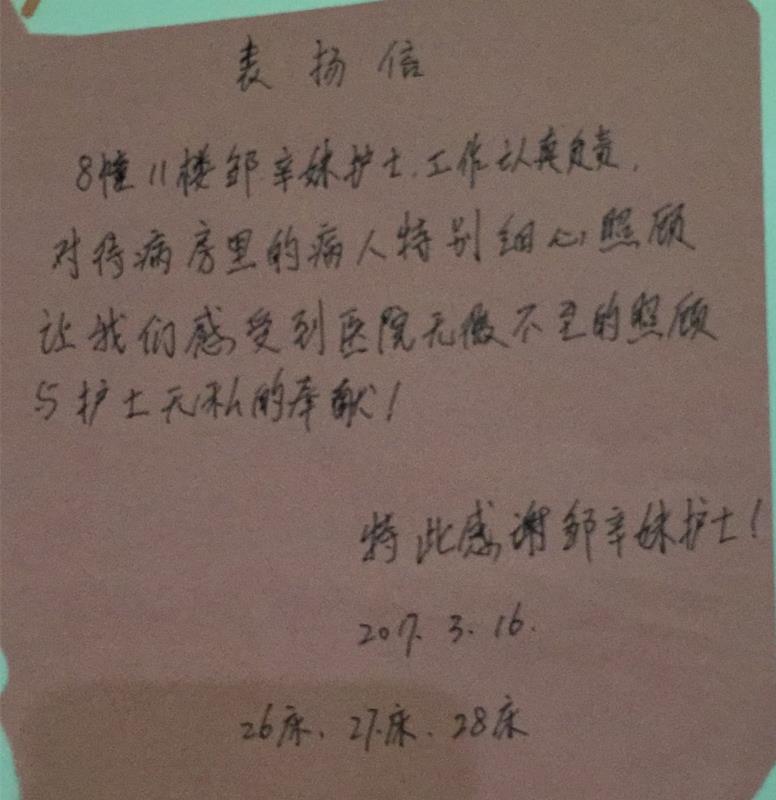 表扬信
8幢11楼邹辛妹护士，工作认真负责，
对待病房里的病人特别细心照顾
让我们感受到医院无微不至的照顾
与护士无私的奉献！
特此感谢邹辛妹护士！
2017.3.16.
26床、27床、28床